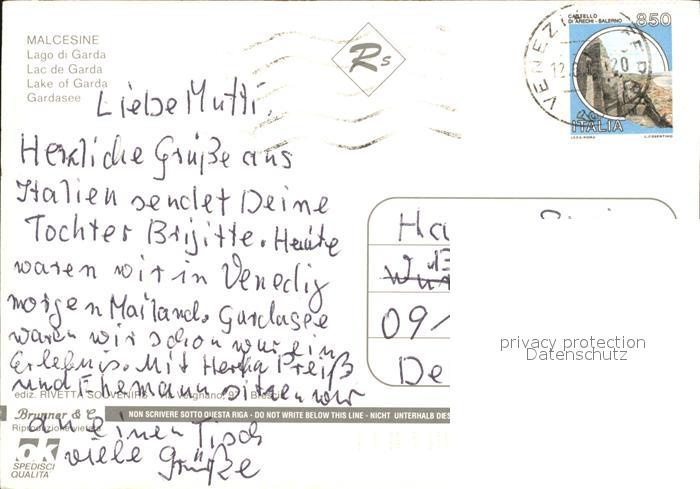 MALCESINE
Lago di Garda
Lac de Garda
Lake of Garda
Gardasee
Rs
VENEZI
12.
20
CASTELLO
DI ARECHI - SALERNO
850
ITALIA
I.P.Z.S. ROMA
L. COSENTINO
Liebe Mutti,
Herzliche Grüße aus
Italien sendet Deine
Tochter Brijitte. Heute
waren wir in Venedig
morgen Mailand. Gardasee
waren wir schon war ein
Erlebnis. Mit Hertha Preiß
und Ehemann sitzen wir
an einen Tisch
viele Grüße
Ha
09/
De
privacy protection
Datenschutz
ediz. RIVETTA SOUVENIRS
Brunner & C.
NON SCRIVERE SOTTO QUESTA RIGA - DO NOT WRITE BELOW THIS LINE - NICHT UNTERHALB DIES
Riproduzione vietata
ok
SPEDISCI
QUALITÀ